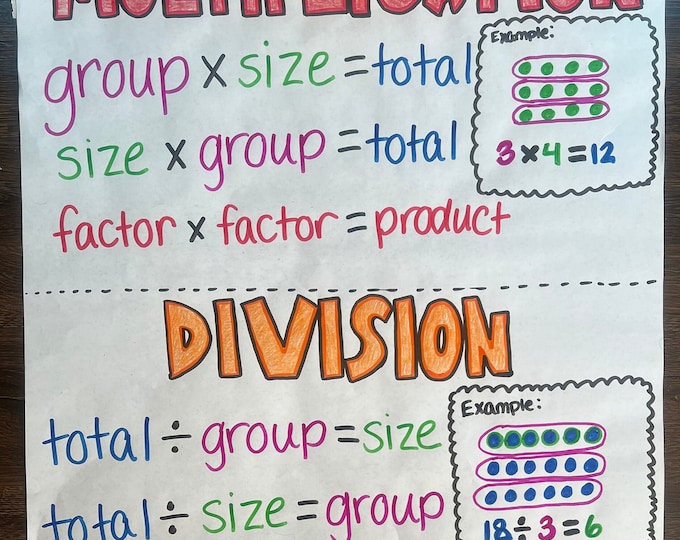 MULTIPLICATION
group x size = total
size x group = total
factor x factor = product
Example:
3 x 4 = 12
DIVISION
total ÷ group = size
total ÷ size = group
Example:
18 ÷ 3 = 6